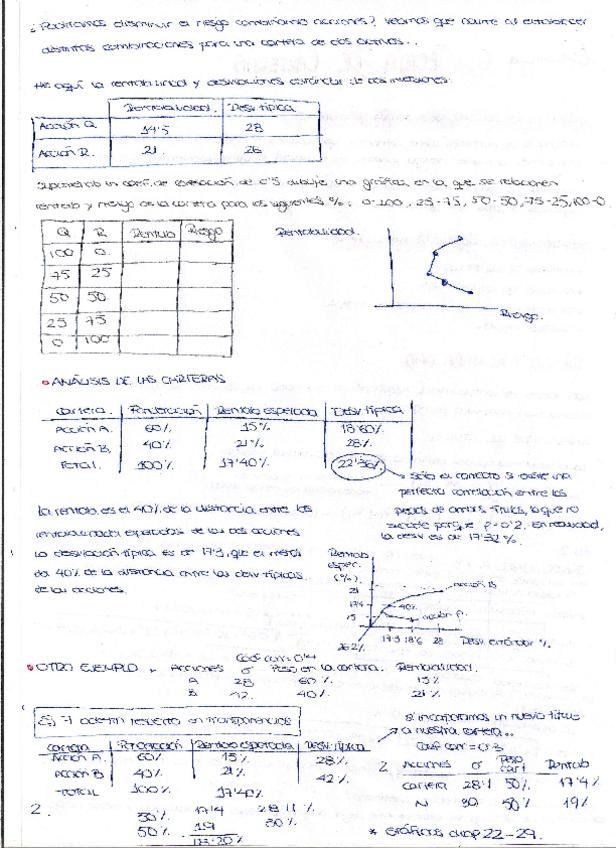 ¿Podríamos disminuir el riesgo combinando acciones? Veamos que ocurre al establecer
distintas combinaciones para una cartera de dos activos..
He aquí la rentabilidad y desviaciones estándar de dos inversiones:
Rentabilidad. Desv típica
Acción Q. 14'5 28
Acción R. 21. 26
Suponiendo un coef. de correlación de 0'5, dibuje una gráfica en la que se relacionen
rentab y riesgo de la cartera para los siguientes %: 0-100, 25-75, 50-50, 75-25, 100-0.
Q R Rentab Riesgo
100 0
75 25
50 50
25 75
0 100
Rentabilidad.
Riesgo.
• ANÁLISIS DE LAS CARTERAS
Cartera. Ponderación Rentab esperada Desv. típica
Acción A. 60% 15% 18'60%
Acción B. 40% 21% 28%
Total. 100% 17'40% 22'36%
sólo es correcto si existe una
perfecta correlación entre los
precios de ambos títulos, lo que no
sucede porque ρ=0'2. En realidad,
la desv es de 17'32%.
La rentab. es el 40% de la distancia entre las
rentabilidades esperadas de las dos acciones
La desviación típica es de 17'3, que es menos
del 40% de la distancia entre las desv típicas
de las acciones.
Rentab
esper.
(%).
21
17'4
15
40%
acción B.
acción A.
17'3 18'6 28 Desv. estándar %.
• OTRO EJEMPLO
Coef corr = 0'4
Acciones σ Peso en la cartera. Rentabilidad.
A 28 60% 15%
B 42. 40% 21%
Cartera Ponderación Rentab esperada Desv. típica
Acción A. 60% 15% 28%
Acción B 40% 21% 42%
TOTAL 100% 17'40%
si incorporamos un nuevo título
a nuestra cartera..
Coef corr = 0'3
2 Acciones σ Peso cart Rentab
Cartera 28'1 50% 17'4%
N 30 50% 19%
2. 50% 17'4 28'11%
50% 19 30%
* Gráficos diap 22-29.